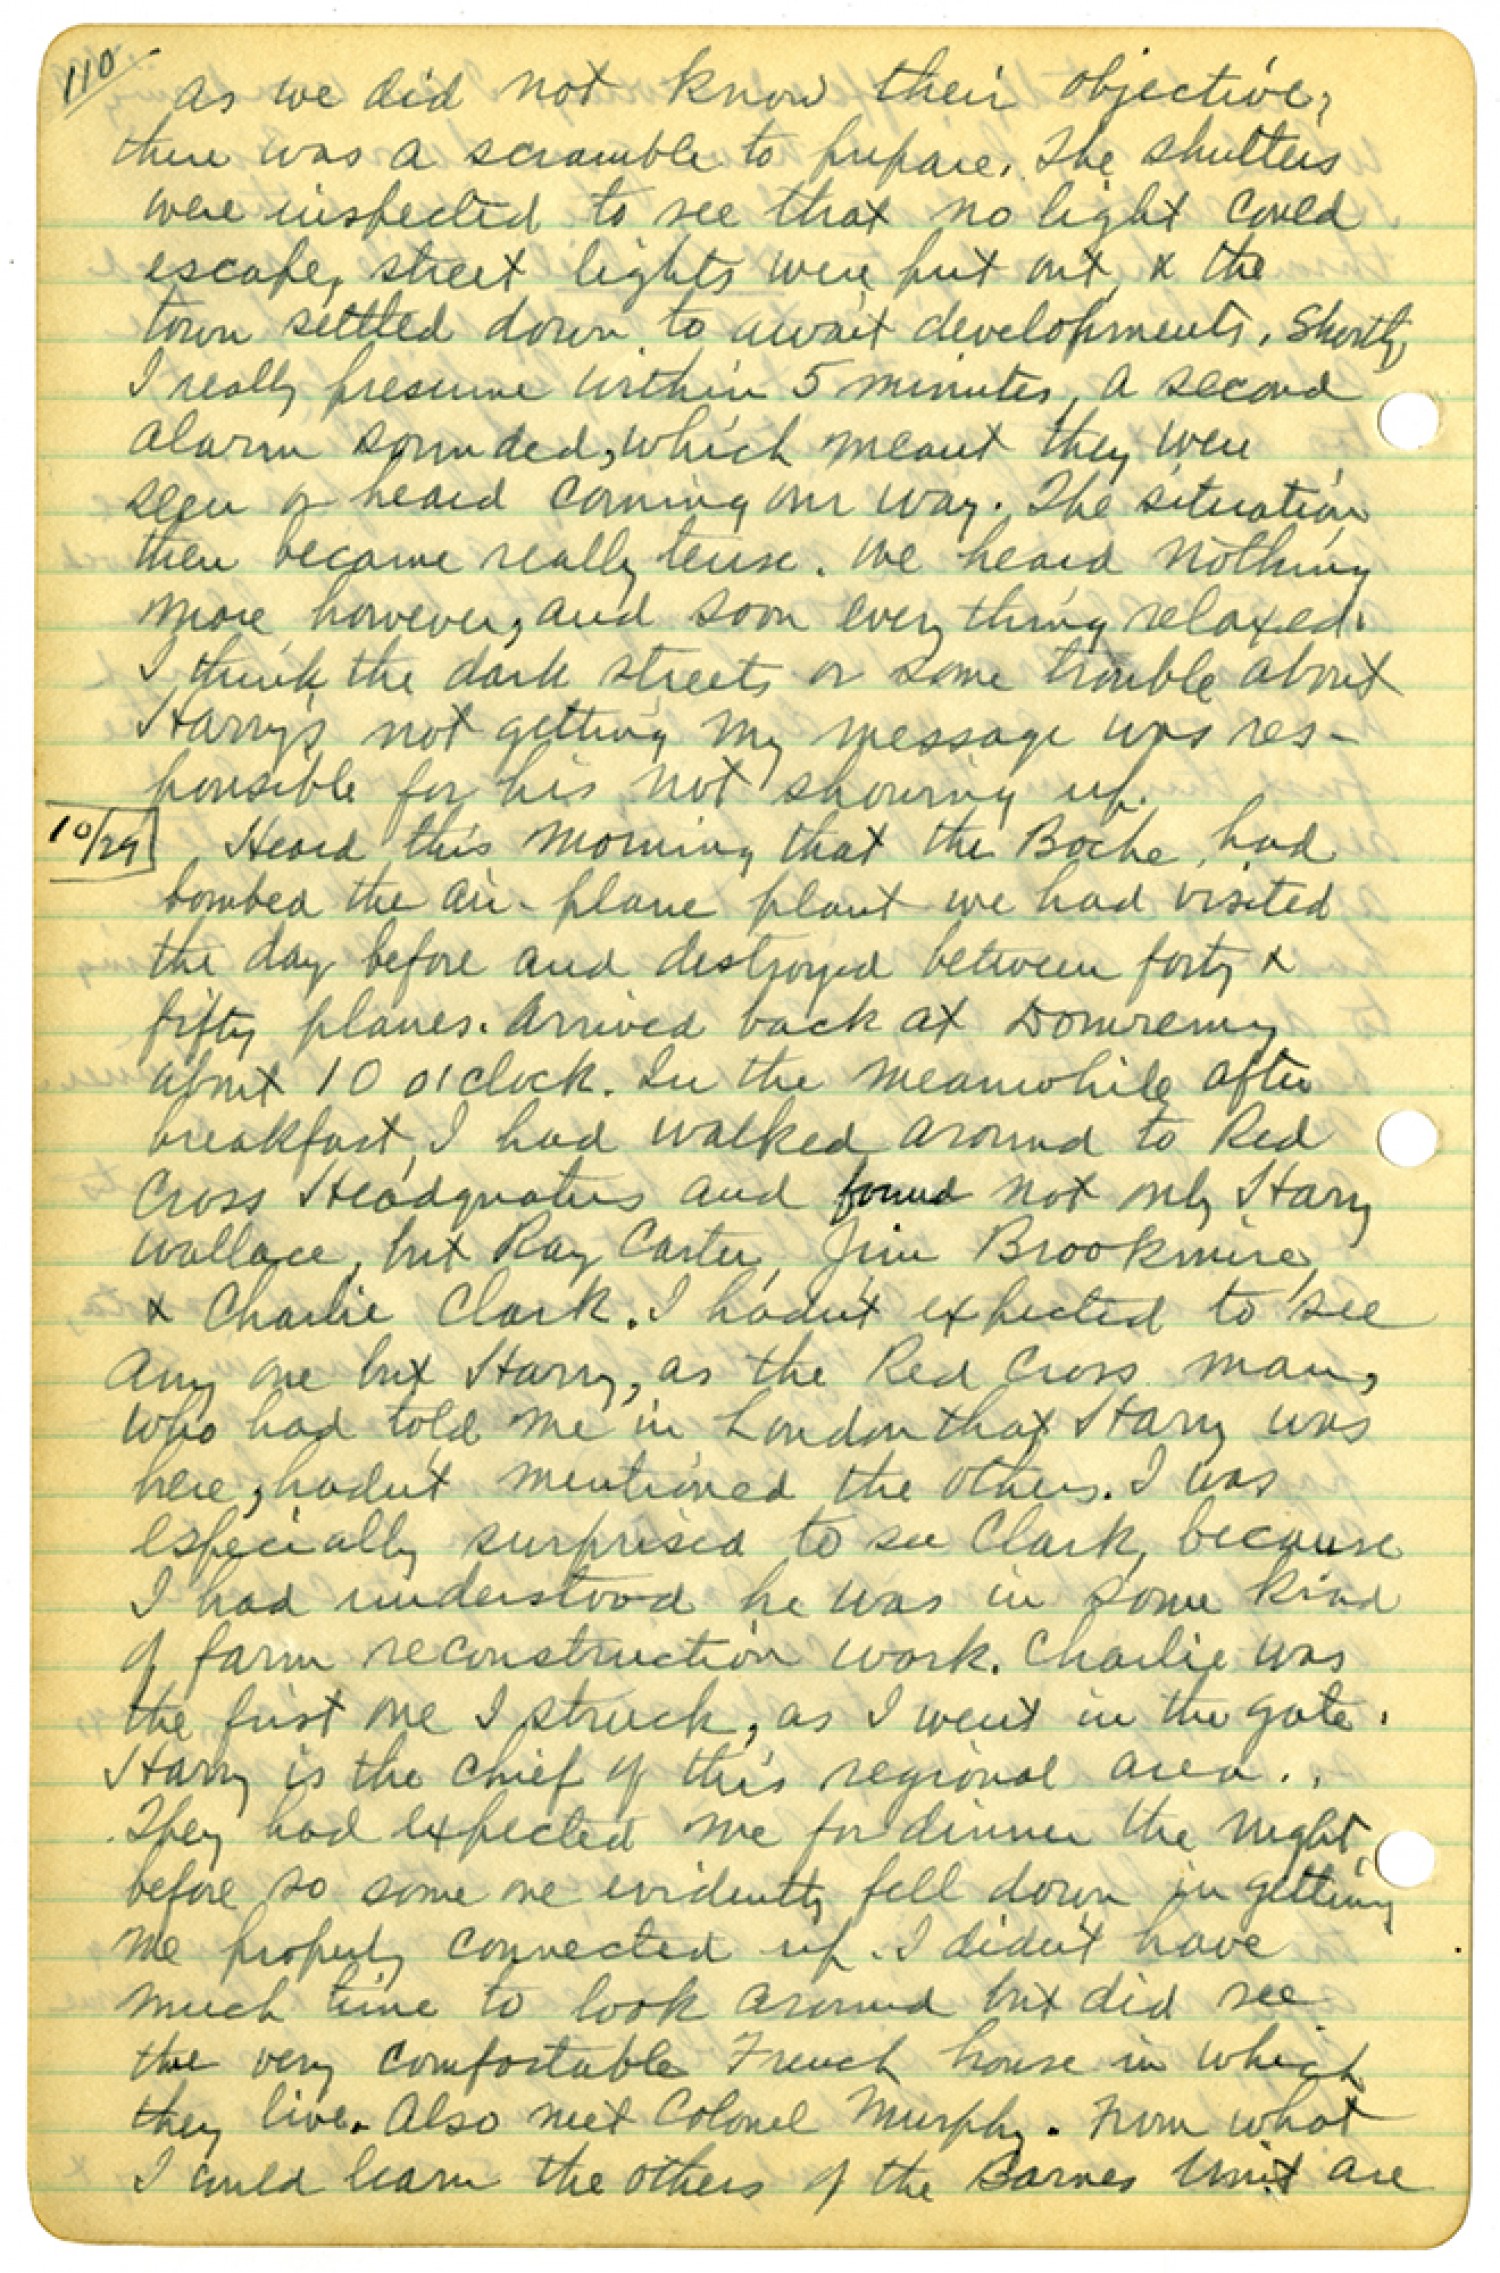 110
As we did not know their objective,
there was a scramble to prepare. The shutters
were inspected to see that no light could
escape, street lights were put out, & the
town settled down to await developments. Shortly,
I really presume within 5 minutes, a second
alarm sounded, which meant they were
seen or heard coming our way. The situation
then became really tense. We heard nothing
more however, and soon everything relaxed.
I think the dark streets or some trouble about
Harry's not getting my message was res-
ponsible for his not showing up.
10/29
Heard this morning that the Boche had
bombed the air-plane plant we had visited
the day before and destroyed between forty &
fifty planes. Arrived back at Domremy
about 10 o'clock. In the meanwhile after
breakfast, I had walked around to Red
Cross Headquaters and found not only Harry
Wallace, but Ray Carter, Jim Brookmire,
& Charlie Clark. I hadn't expected to see
any one but Harry, as the Red Cross man,
who had told me in London that Harry was
here, hadn't mentioned the others. I was
especially surprised to see Clark, because
I had understood he was in some kind
of farm reconstruction work. Charlie was
the first one I struck, as I went in the gate.
Harry is the chief of this regional area..
They had expected me for dinner the night
before, so some one evidently fell down in getting
me properly connected up. I didn't have
much time to look around but did see
the very comfortable French house in which
they live. Also met Colonel Murphy. From what
I could learn the others of the Barnes Unit are